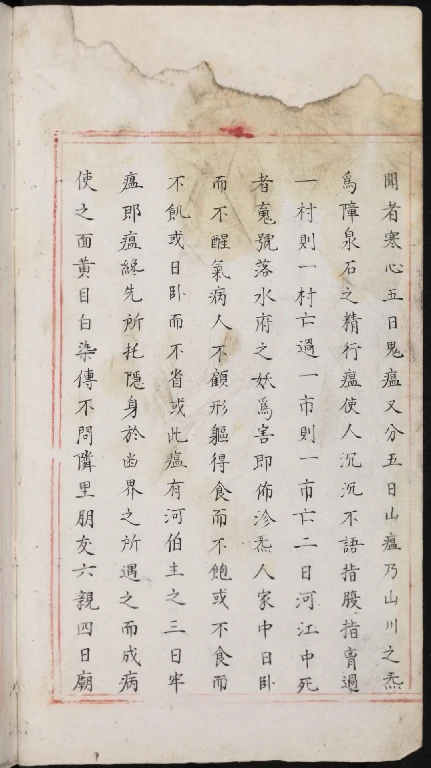 聞者寒心五曰鬼瘟又分五曰山瘟乃山川之炁
爲障泉石之精行瘟使人沉沉不語指腹指肓過
一村則一村亡過一市則一市亡二曰河江中死
者䰟號落水府之妖爲害即佈沴炁人家中日卧
而不醒氣病人不顧形軀得食而不飽或不食而
不飢或日卧而不省或此瘟有河伯主之三曰牢
瘟即瘟綘先所托隱身於凼界之所遇之而成病
使之面黄目白染傳不問隣里朋友六親四曰廟